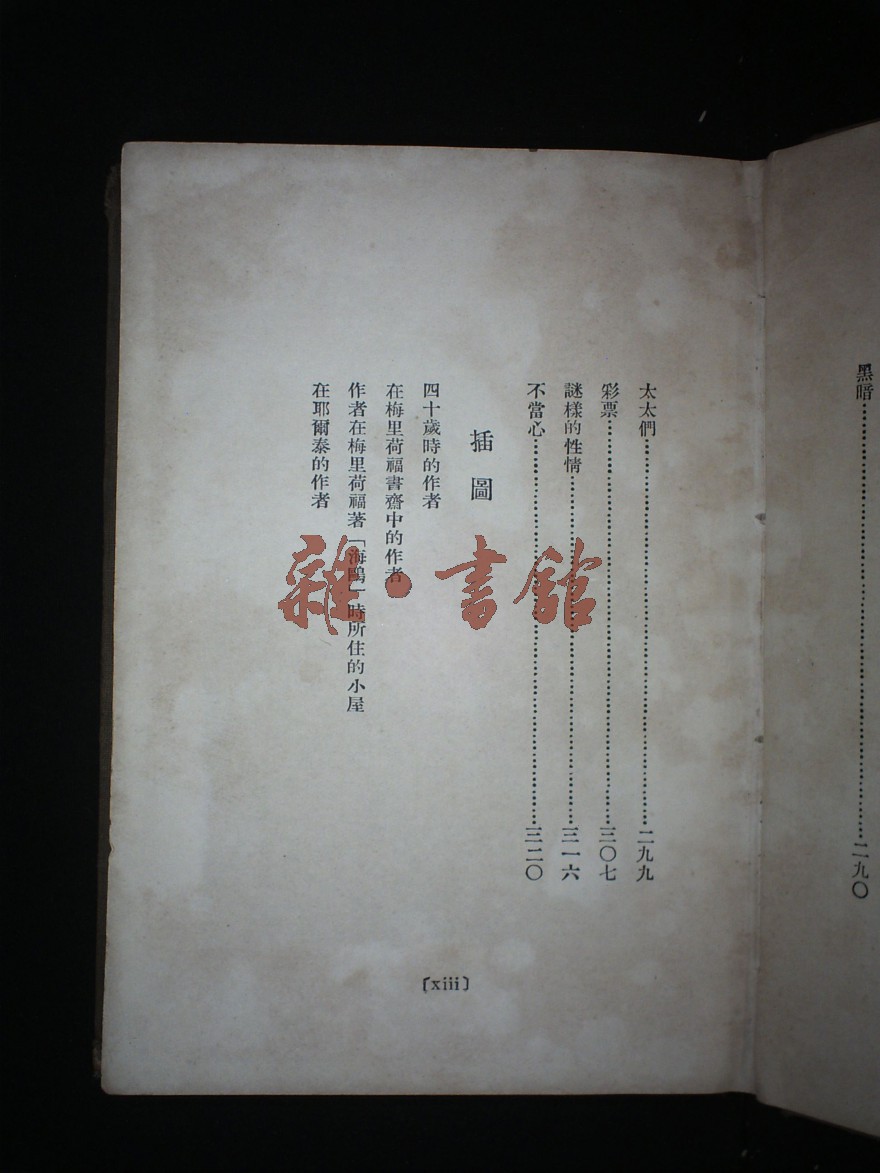 黑暗……二九〇
太太們……二九九
彩票……三〇七
謎樣的性情……三一六
不當心……三二〇
插圖
四十歲時的作者
在梅里荷福書齋中的作者
作者在梅里荷福著「海鷗」時所住的小屋
在耶爾泰的作者
〔xiii〕
雜·書館